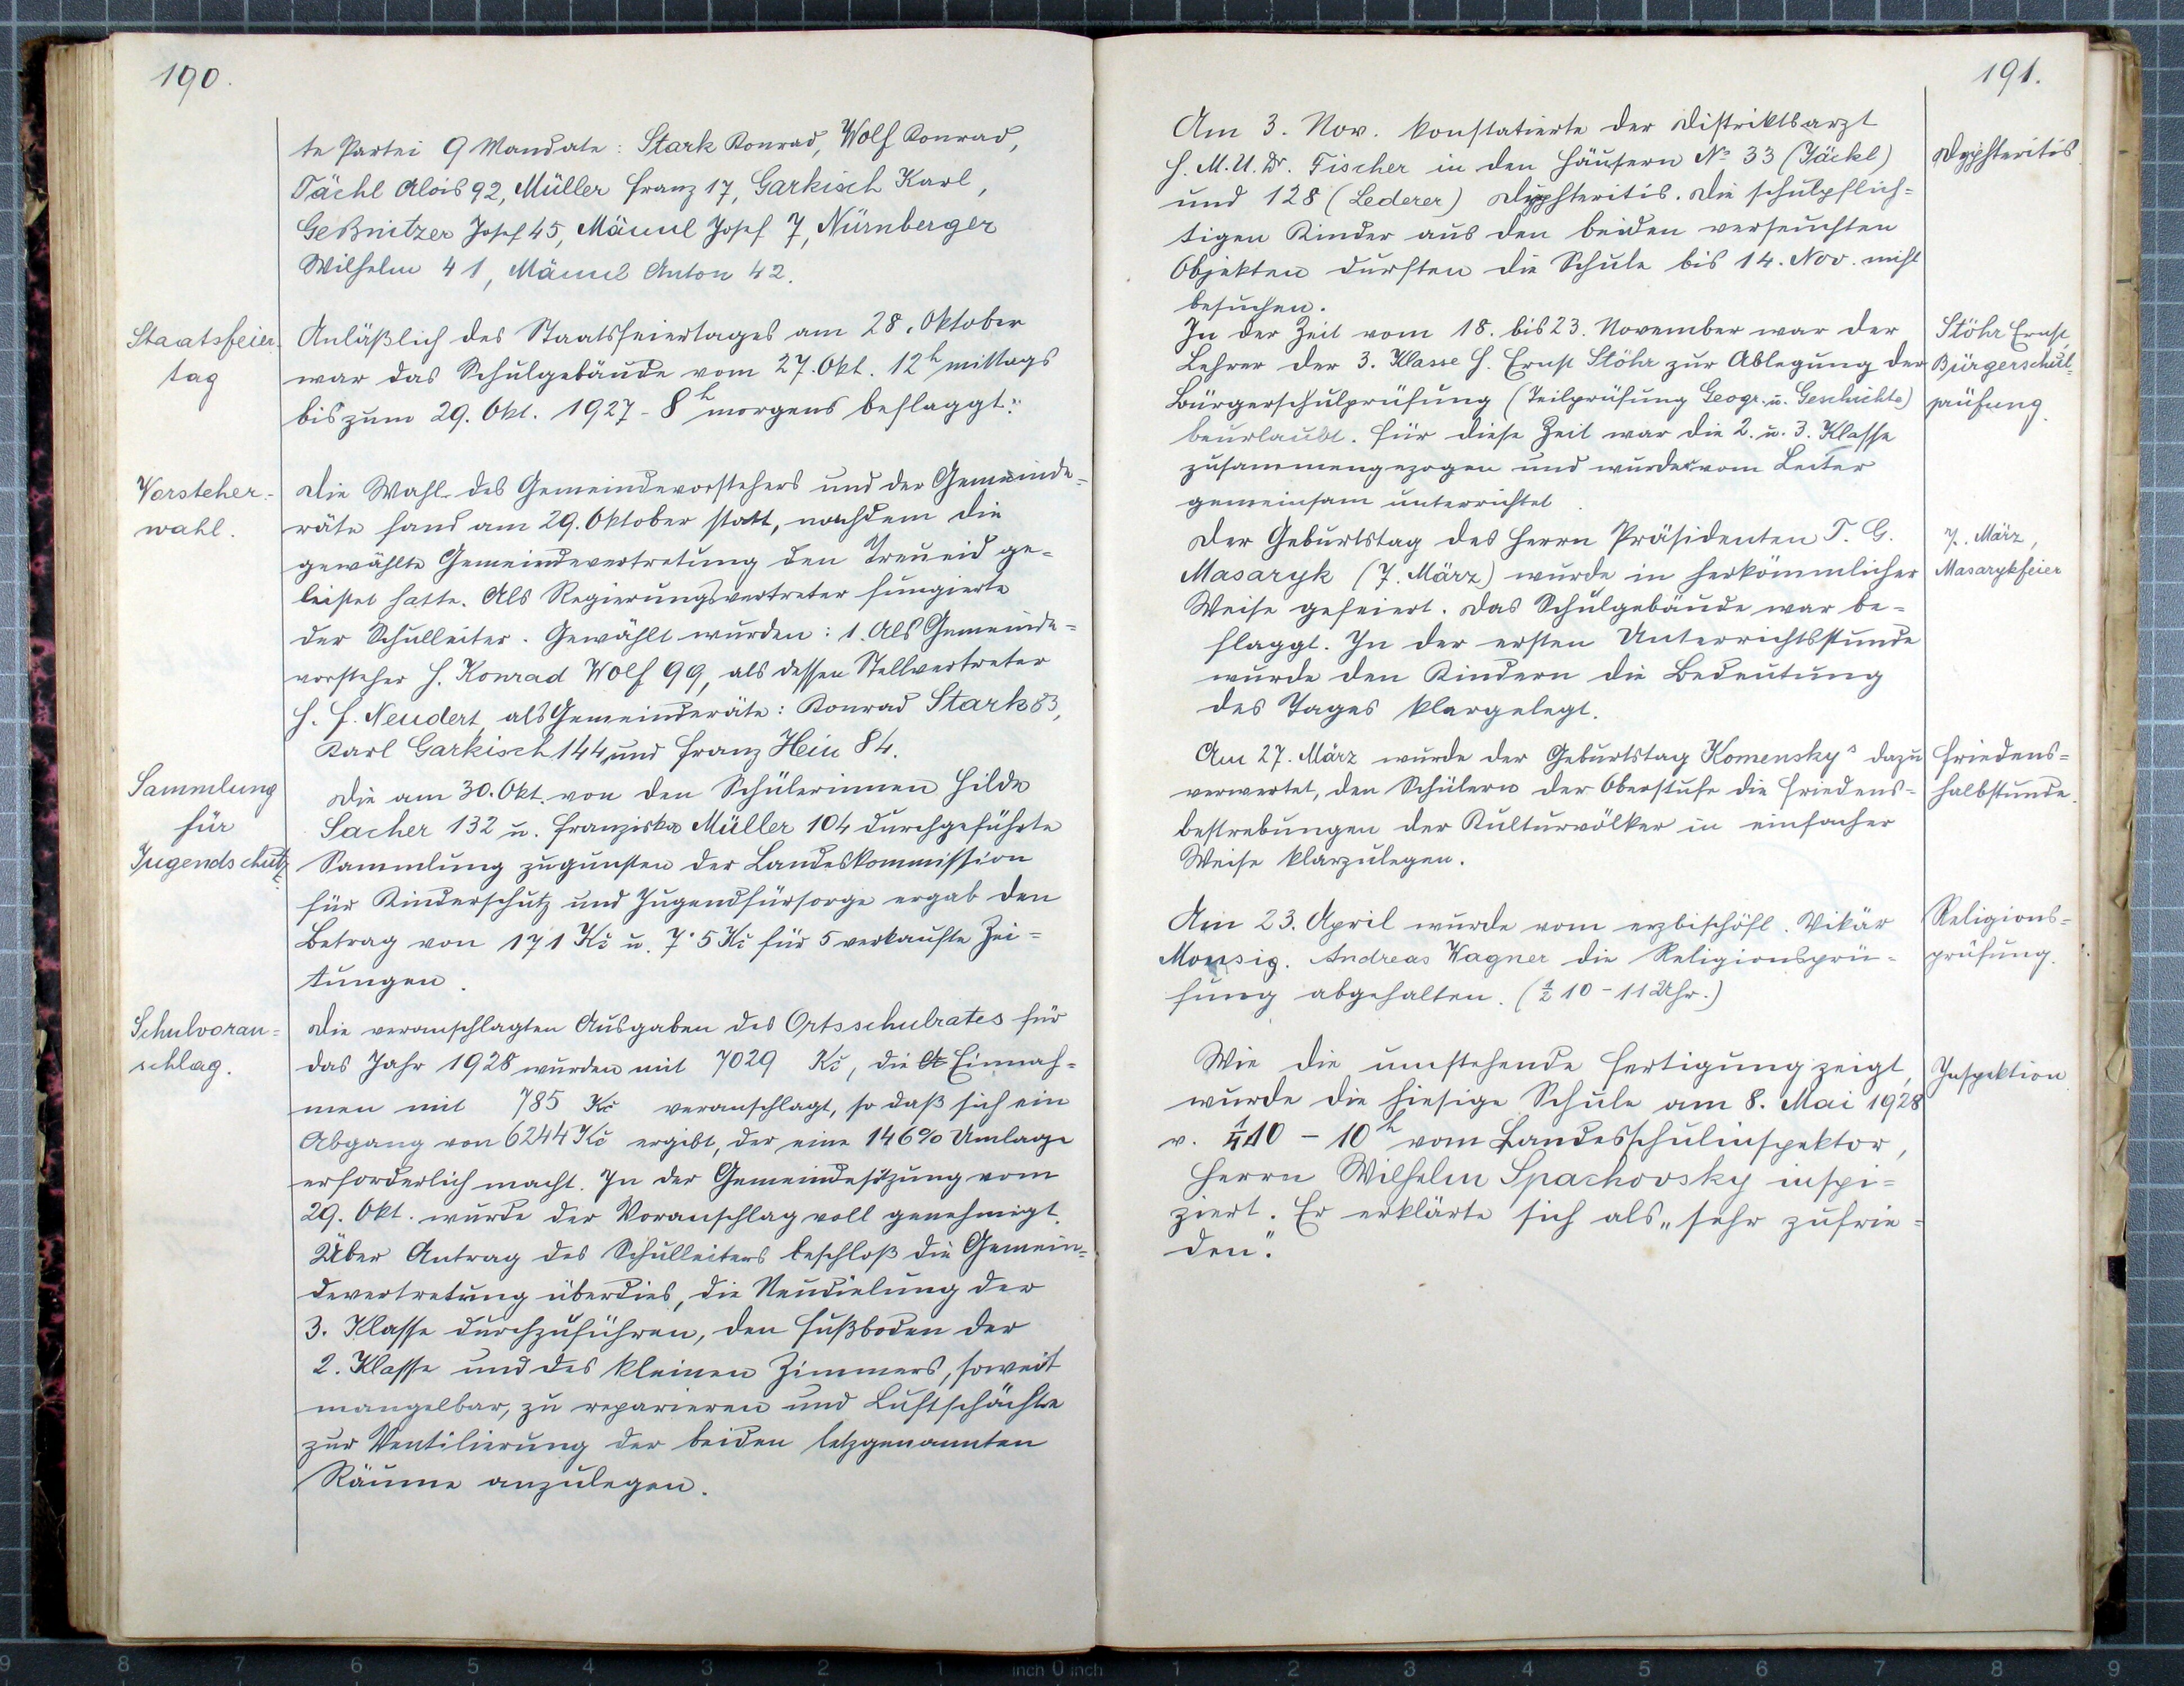 190.
te Partei 9 Mandate: Stark Konrad, Wolf Konrad,
Tächl Alois 92, Müller Franz 17, Garkisch Karl,
Geßnitzer Josef 45, Männl Josef 7, Nürnberger
Wilhelm 41, Männl Anton 42.
Staatsfeier-
tag
Anläßlich des Staatsfeiertages am 28. Oktober
war das Schulgebäude vom 27. Okt. 12h mittags
bis zum 29. Okt. 1927 - 8h morgens beflaggt.
Vorsteher-
wahl.
Die Wahl des Gemeindevorstehers und der Gemeinde-
räte fand am 29. Oktober statt, nachdem die
gewählte Gemeindevertretung den Treueid ge-
leistet hatte. Als Regierungsvertreter fungierte
der Schulleiter. Gewählt wurden: 1. Als Gemeinde-
vorsteher H. Konrad Wolf 99, als dessen Stellvertreter
H. F. Neudert, als Gemeinderäte: Konrad Stark 83,
Karl Garkisch 144 und Franz Hein 84.
Sammlung
für
Jugendschutz.
Die am 30. Okt. von den Schülerinnen Hilde
Sacher 132 u. Franziska Müller 104 durchgeführte
Sammlung zugunsten der Landeskommission
für Kinderschutz und Jugendfürsorge ergab den
Betrag von 171 Kč u. 7·5 Kč für 5 verkaufte Zei-
tungen.
Schulvoran-
schlag.
Die veranschlagten Ausgaben des Ortsschulrates für
das Jahr 1928 wurden mit 7029 Kč, die Einnah-
men mit 785 Kč veranschlagt, so daß sich ein
Abgang von 6244 Kč ergibt, der eine 146% Umlage
erforderlich macht. In der Gemeindesitzung vom
29. Okt. wurde der Voranschlag voll genehmigt.
Über Antrag des Schulleiters beschloß die Gemein-
devertretung überdies, die Neudielung der
3. Klasse durchzuführen, den Fußboden der
2. Klasse und des kleinen Zimmers, soweit
mangelbar, zu reparieren und Luftschächte
zur Ventilierung der beiden letzgenannten
Räume anzulegen.
191.
Am 3. Nov. konstatierte der Distriktsarzt
H. M. U. Dr. Fischer in den Häusern No 33 (Jäckl)
und 128 (Lederer) Dyphteritis. Die schulpflich-
tigen Kinder aus den beiden verseuchten
Objekten durften die Schule bis 14. Nov. nicht
besuchen.
Dyphteritis
In der Zeit vom 18. bis 23. November war der
Lehrer der 3. Klasse H. Ernst Stöhr zur Ablegung der
Bürgerschulprüfung (Teilprüfung Geogr. u. Geschichte)
beurlaubt. Für diese Zeit war die 2. u. 3. Klasse
zusammengezogen und wurde vom Leiter
gemeinsam unterrichtet.
Stöhr Ernst,
Bürgerschul-
prüfung.
Der Geburtstag des Herrn Präsidenten T. G.
Masaryk (7. März) wurde in herkömmlicher
Weise gefeiert. Das Schulgebäude war be-
flaggt. In der ersten Unterrichtsstunde
wurde den Kindern die Bedeutung
des Tages klargelegt.
7. März,
Masarykfeier
Am 27. März wurde der Geburtstag Komenskys dazu
verwertet, den Schülern der Oberstufe die Friedens-
bestrebungen der Kulturvölker in einfacher
Weise klarzulegen.
Friedens-
halbstunde.
Am 23. April wurde vom erzbischöfl. Vikär
Monsig. Andreas Wagner die Religionsprü-
fung abgehalten. (½ 10 - 11 Uhr.)
Religions-
prüfung.
Wie die umstehende Fertigung zeigt,
wurde die hiesige Schule am 8. Mai 1928
v. ¼10 - 10h vom Landesschulinspektor,
Herrn Wilhelm Spachovsky inspi-
ziert. Er erklärte sich als „sehr zufrie-
den".
Inspektion
9 8 7 6 5 4 3 2 1 inch 0 inch 1 2 3 4 5 6 7 8 9